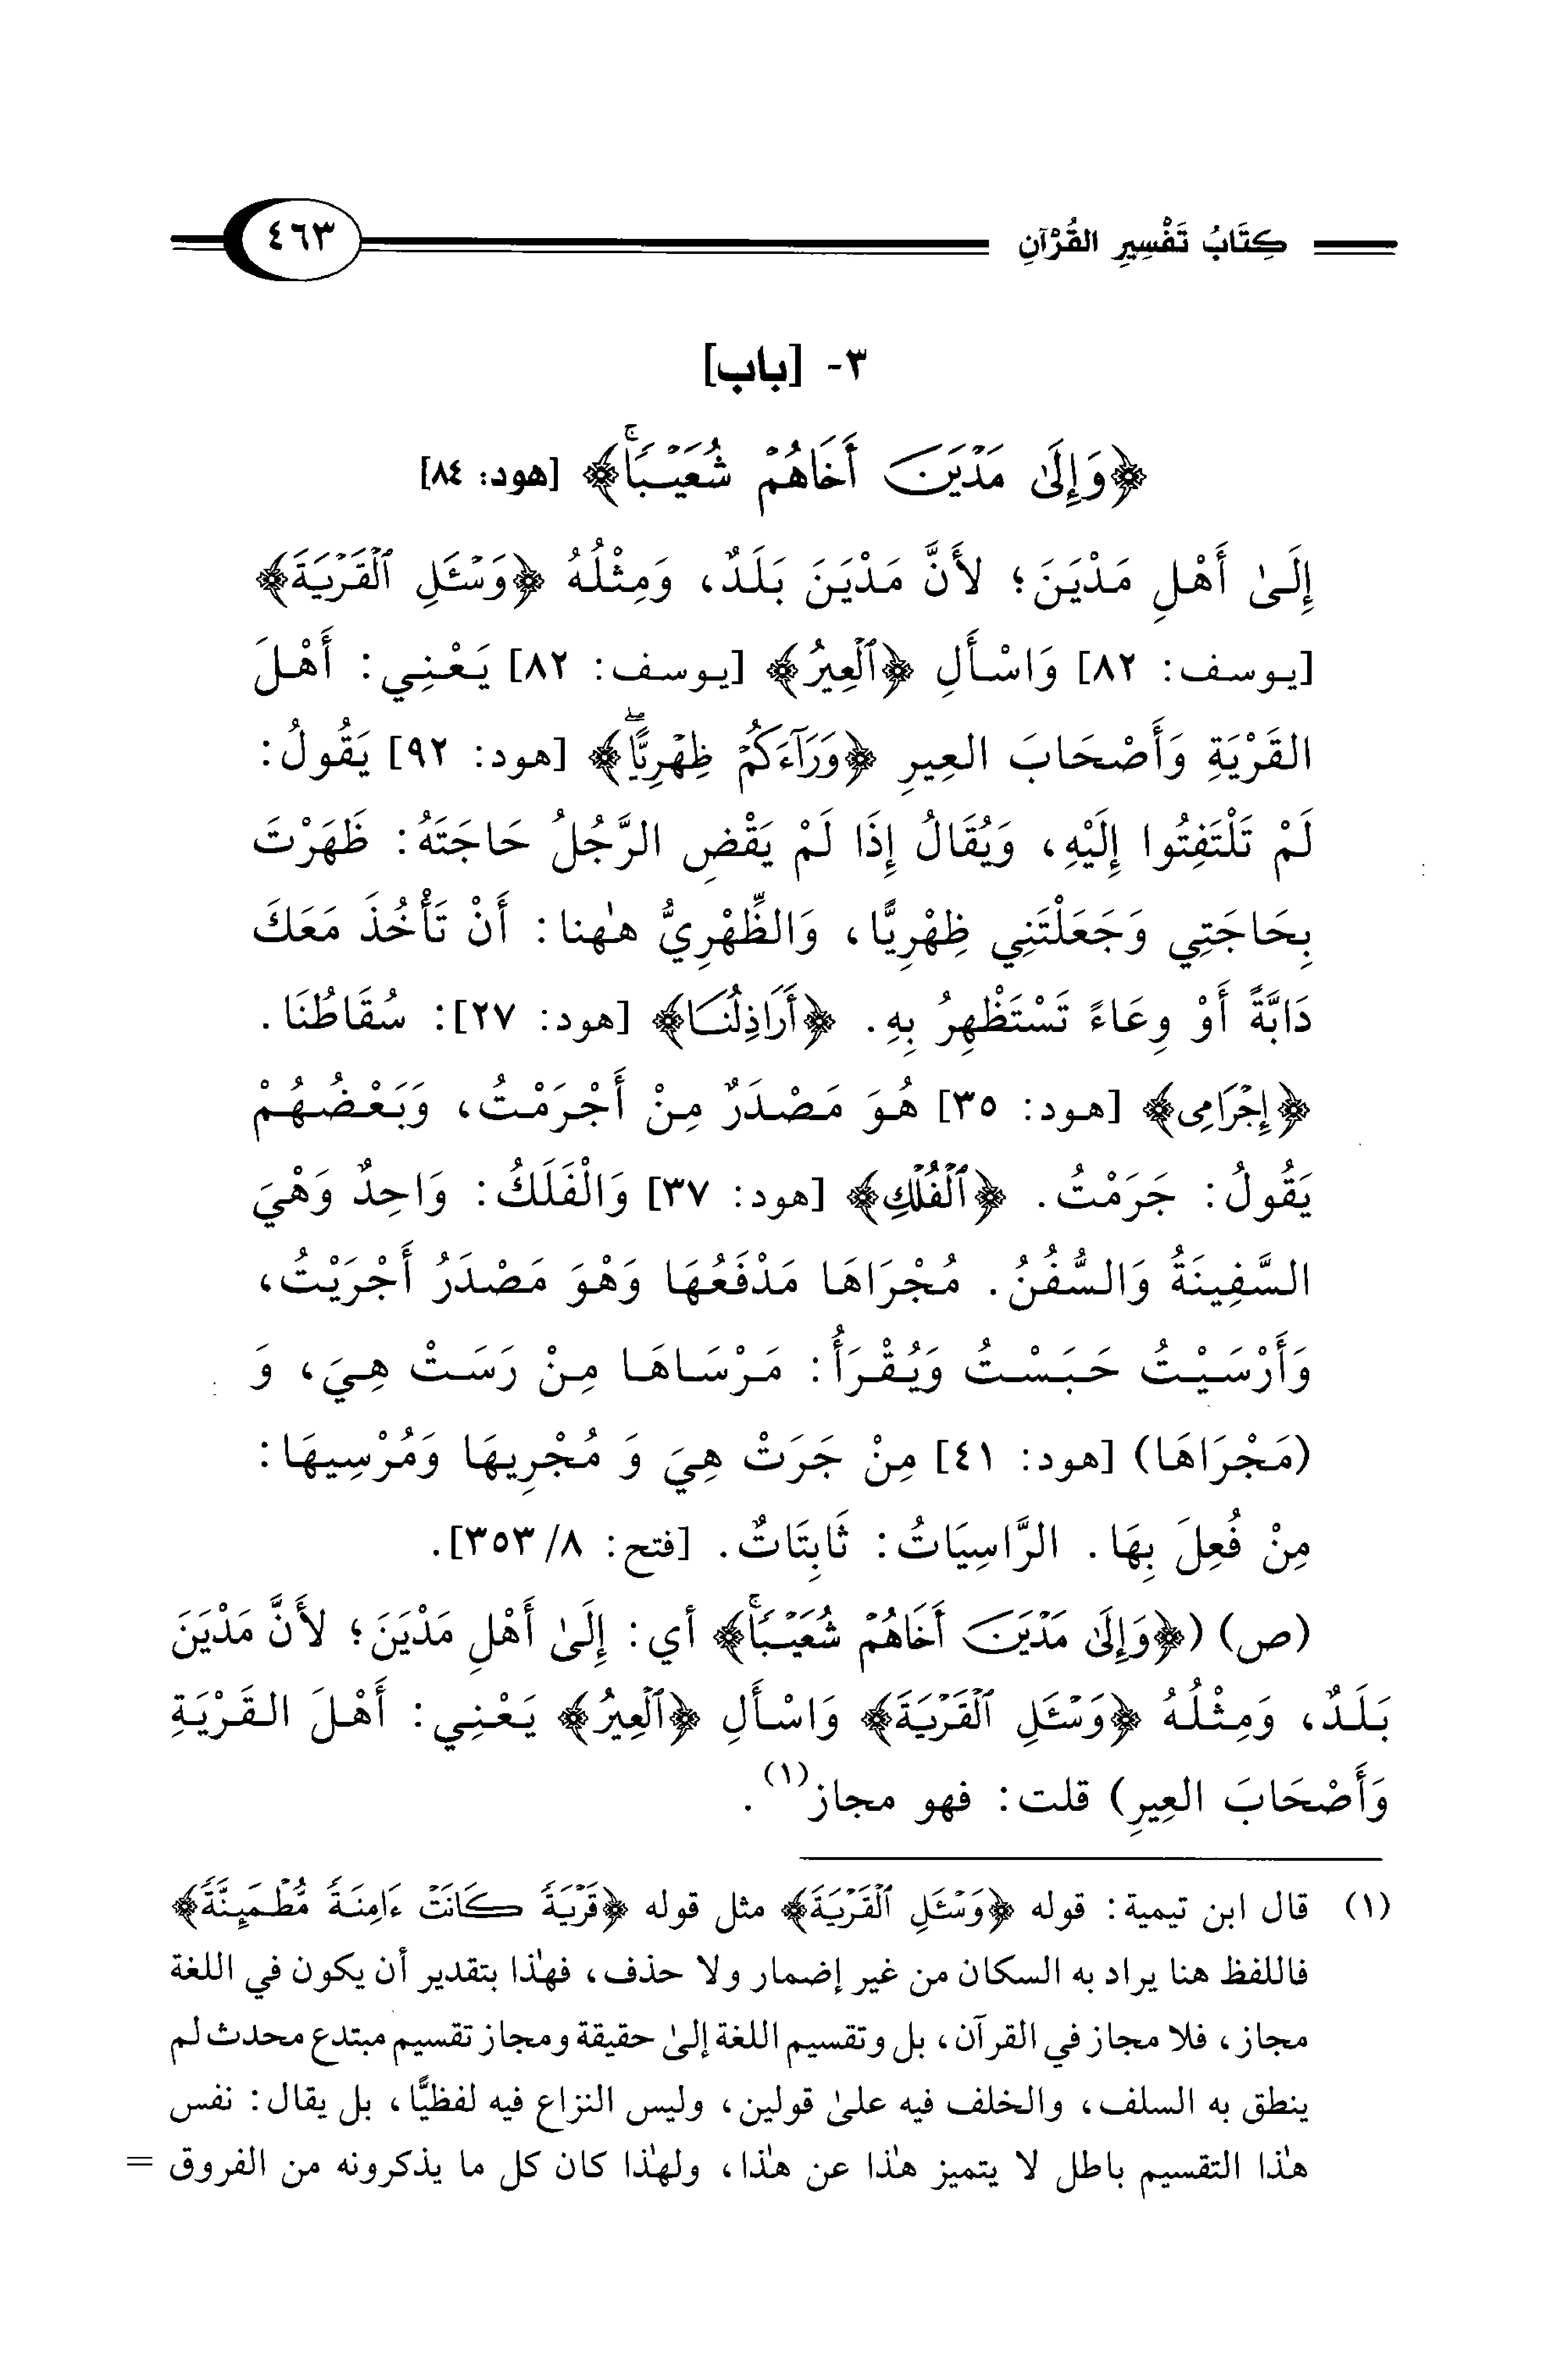 كِتَابُ تَفْسِيرِ القُرْآنِ ٤٦٣
٣- [باب]
﴿وَإِلَىٰ مَدْيَنَ أَخَاهُمْ شُعَيْبًا ۚ﴾ [هود: ٨٤]
إِلَىٰ أَهْلِ مَدْيَنَ؛ لأَنَّ مَدْيَنَ بَلَدٌ، وَمِثْلُهُ ﴿وَسْـَٔلِ ٱلْقَرْيَةَ﴾
[يوسف: ٨٢] وَاسْأَلِ ﴿ٱلْعِيرُ﴾ [يوسف: ٨٢] يَعْنِي: أَهْلَ
القَرْيَةِ وَأَصْحَابَ العِيرِ ﴿وَرَآءَكُمْ ظِهْرِيًّا ۖ﴾ [هود: ٩٢] يَقُولُ:
لَمْ تَلْتَفِتُوا إِلَيْهِ، وَيُقَالُ إِذَا لَمْ يَقْضِ الرَّجُلُ حَاجَتَهُ: ظَهَرْتَ
بِحَاجَتِي وَجَعَلْتَنِي ظِهْرِيًّا، وَالظِّهْرِيُّ هٰهنا: أَنْ تَأْخُذَ مَعَكَ
دَابَّةً أَوْ وِعَاءً تَسْتَظْهِرُ بِهِ. ﴿أَرَاذِلُنَا﴾ [هود: ٢٧]: سُقَاطُنَا.
﴿إِجْرَامِى﴾ [هود: ٣٥] هُوَ مَصْدَرٌ مِنْ أَجْرَمْتُ، وَبَعْضُهُمْ
يَقُولُ: جَرَمْتُ. ﴿ٱلْفُلْكِ﴾ [هود: ٣٧] وَالْفَلَكُ: وَاحِدٌ وَهْيَ
السَّفِينَةُ وَالسُّفُنُ. مُجْرَاهَا مَدْفَعُهَا وَهْوَ مَصْدَرُ أَجْرَيْتُ،
وَأَرْسَيْتُ حَبَسْتُ وَيُقْرَأُ: مَرْسَاهَا مِنْ رَسَتْ هِيَ، وَ
(مَجْرَاهَا) [هود: ٤١] مِنْ جَرَتْ هِيَ وَ مُجْرِيهَا وَمُرْسِيهَا:
مِنْ فُعِلَ بِهَا. الرَّاسِيَاتُ: ثَابِتَاتٌ. [فتح: ٨/ ٣٥٣].
(ص) (﴿وَإِلَىٰ مَدْيَنَ أَخَاهُمْ شُعَيْبًا ۚ﴾ أي: إِلَىٰ أَهْلِ مَدْيَنَ؛ لأَنَّ مَدْيَنَ
بَلَدٌ، وَمِثْلُهُ ﴿وَسْـَٔلِ ٱلْقَرْيَةَ﴾ وَاسْأَلِ ﴿ٱلْعِيرُ﴾ يَعْنِي: أَهْلَ القَرْيَةِ
وَأَصْحَابَ العِيرِ) قلت: فهو مجاز(١).
(١) قال ابن تيمية: قوله ﴿وَسْـَٔلِ ٱلْقَرْيَةَ﴾ مثل قوله ﴿قَرْيَةً كَانَتْ ءَامِنَةً مُّطْمَئِنَّةً﴾
فاللفظ هنا يراد به السكان من غير إضمار ولا حذف، فهٰذا بتقدير أن يكون في اللغة
مجاز، فلا مجاز في القرآن، بل وتقسيم اللغة إلىٰ حقيقة ومجاز تقسيم مبتدع محدث لم
ينطق به السلف، والخلف فيه علىٰ قولين، وليس النزاع فيه لفظيًّا، بل يقال: نفس
هٰذا التقسيم باطل لا يتميز هٰذا عن هٰذا، ولهٰذا كان كل ما يذكرونه من الفروق =